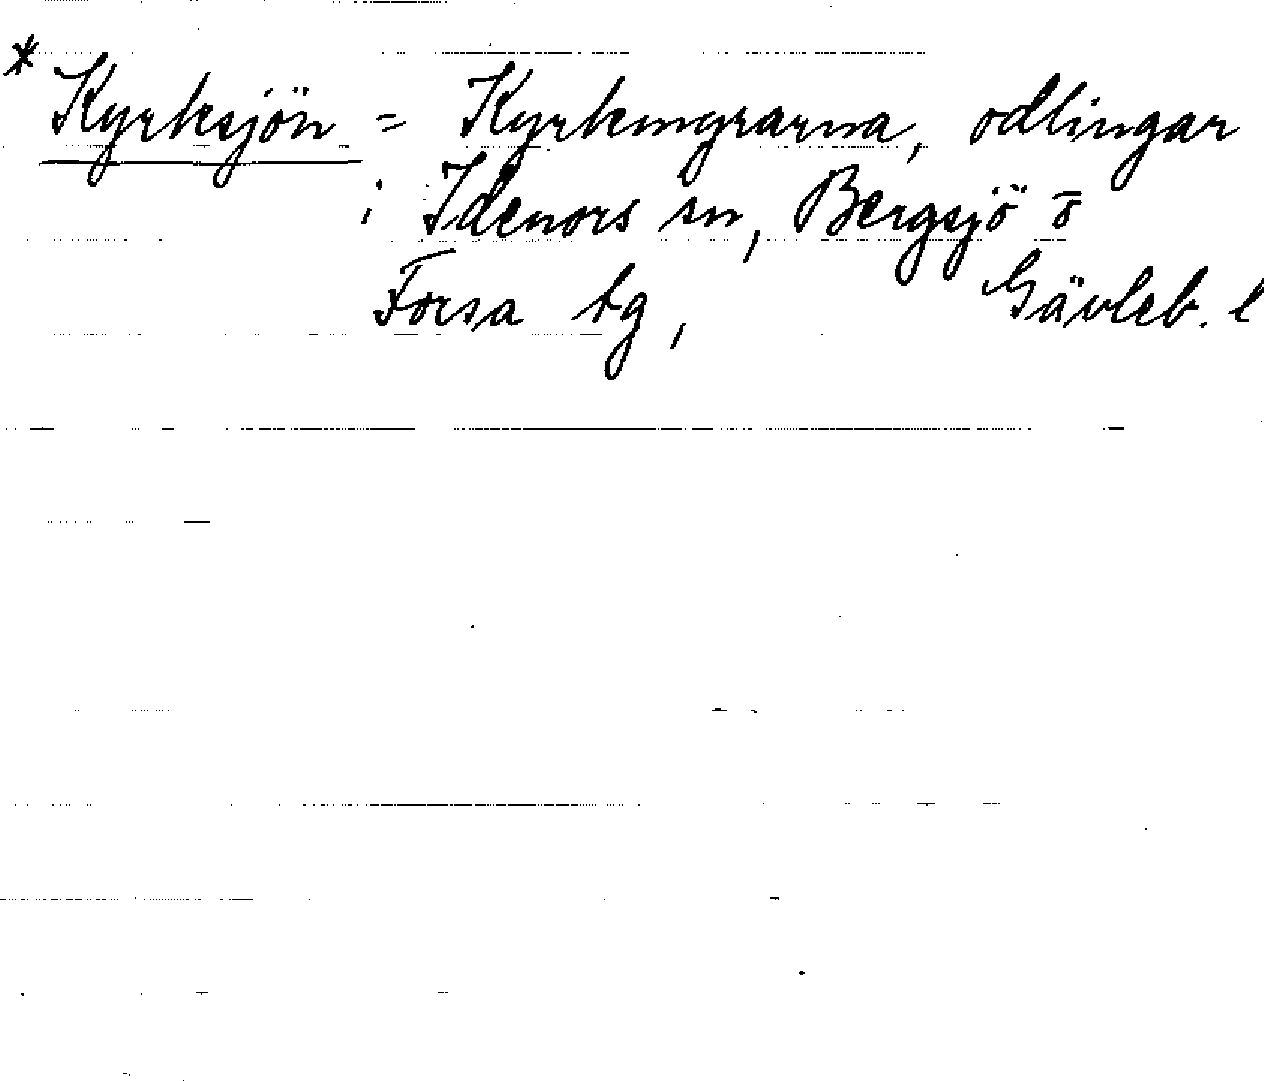 * Kyrksjön = Kyrkmyrarna, odlingar
i Idenors sn, Bergsjö o
Forsa tg, Gävleb. l